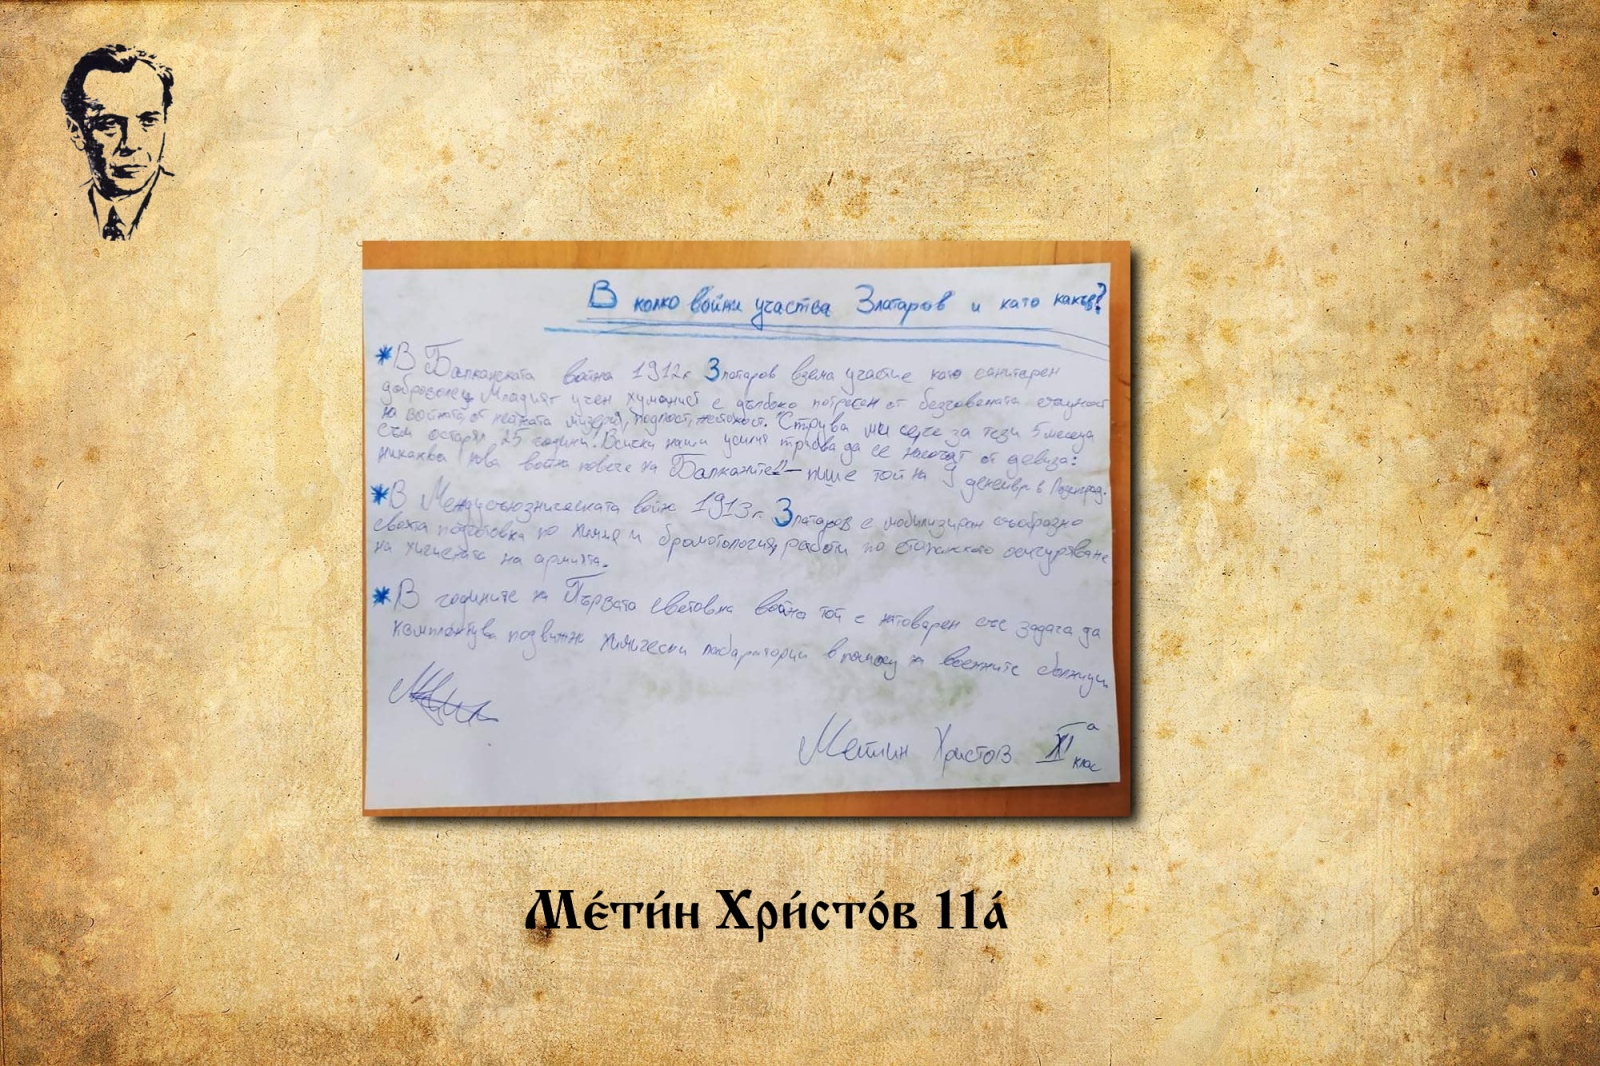 В колко войни участва Златаров и като какъв?
* В Балканската война 1912г. Златаров взема участие като санитарен
доброволец. Младият учен хуманист е дълбоко потресен от безчовечната същност
на войната от нейната мизерия, подлост, жестокост. "Струва ми се, че за тези 5 месеца
съм остарял 25 години. Всички наши усилия трябва да се насочат от девиза:
никаква нова война повече на Балканите" – пише той на 9 декември в Лозенград.
* В Междусъюзническата война 1913г. Златаров е мобилизиран съобразно
своята подготовка по химия и бромотология, работи по стопанското осигуряване
на хигиената на армията.
* В годините на Първата световна война той е натоварен със задача да
комплектува подвижни химически лаборатории в помощ на военните болници
Метин Христов XI а
клас
Ме́ти́н Хри́сто́в 11а́